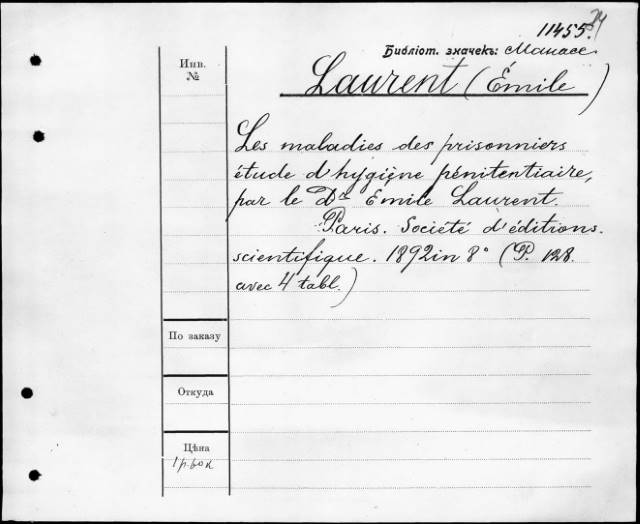 11455.
Библіот. значекъ: Манасс.
Инв.
№
Laurent (Émile)
Les maladies des prisonniers
étude d'hygiène pénitentiaire,
par le Dr. Emile Laurent.
Paris. Société d'éditions
scientifique. 1892 in 8° (P. 128.
avec 4 tabl.)
По заказу
Откуда
Цѣна
1 р. 60 к